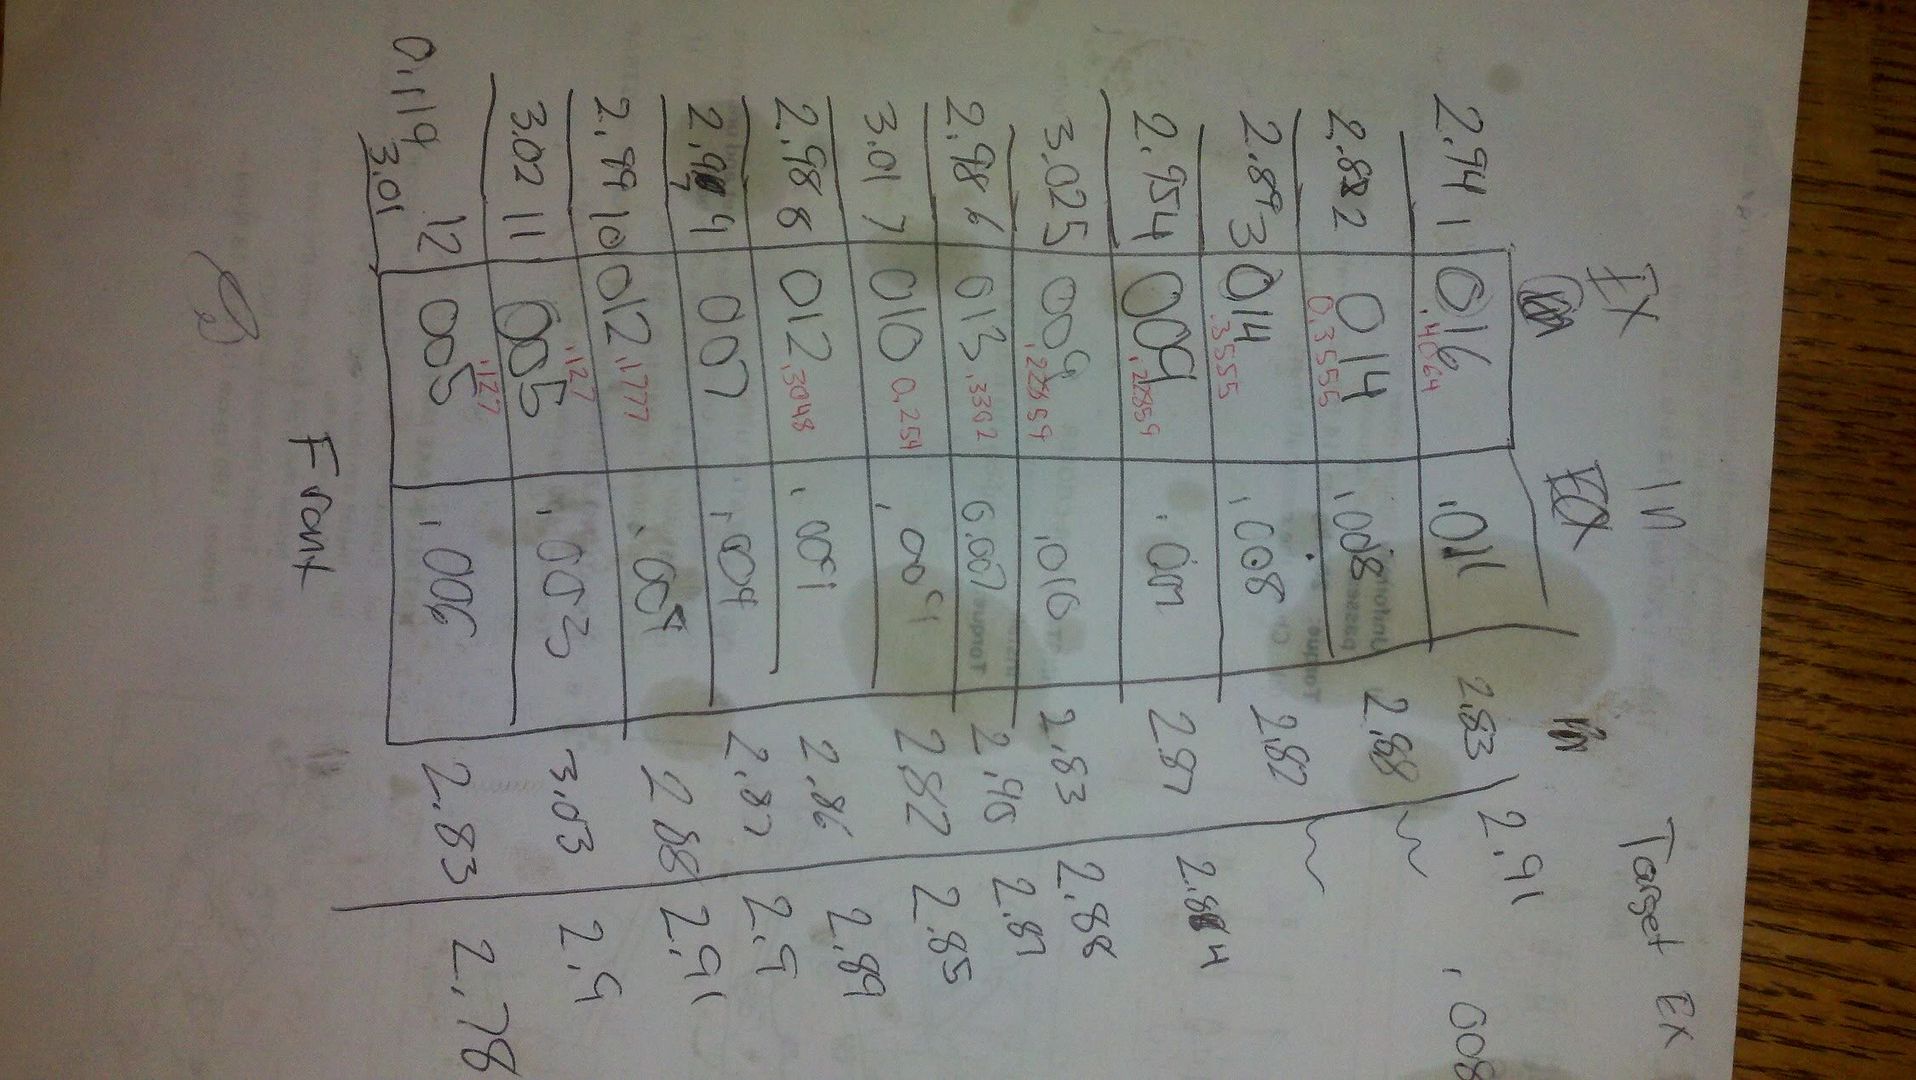 EX IN Target EX
2.94 1 016 .4064 .011 2.83 2.91 .008
2.88 2 014 0.3555 .008 2.88 ~
2.89 3 014 .3555 .008 2.82 ~
2.95 4 009 .22859 2.87 2.84
3.02 5 009 .22859 .010 2.83 2.88
2.98 6 013 .3302 0.007 2.90 2.87
3.01 7 010 0.254 .009 2.82 2.85
2.98 8 012 .3048 .009 2.86 2.89
2.97 9 007 .009 2.87 2.9
2.99 10 012 .1777 2.88 2.91
3.02 11 005 .127 .003 3.03 2.9
3.01 12 005 .127 .006 2.83 2.78
0.119
Front